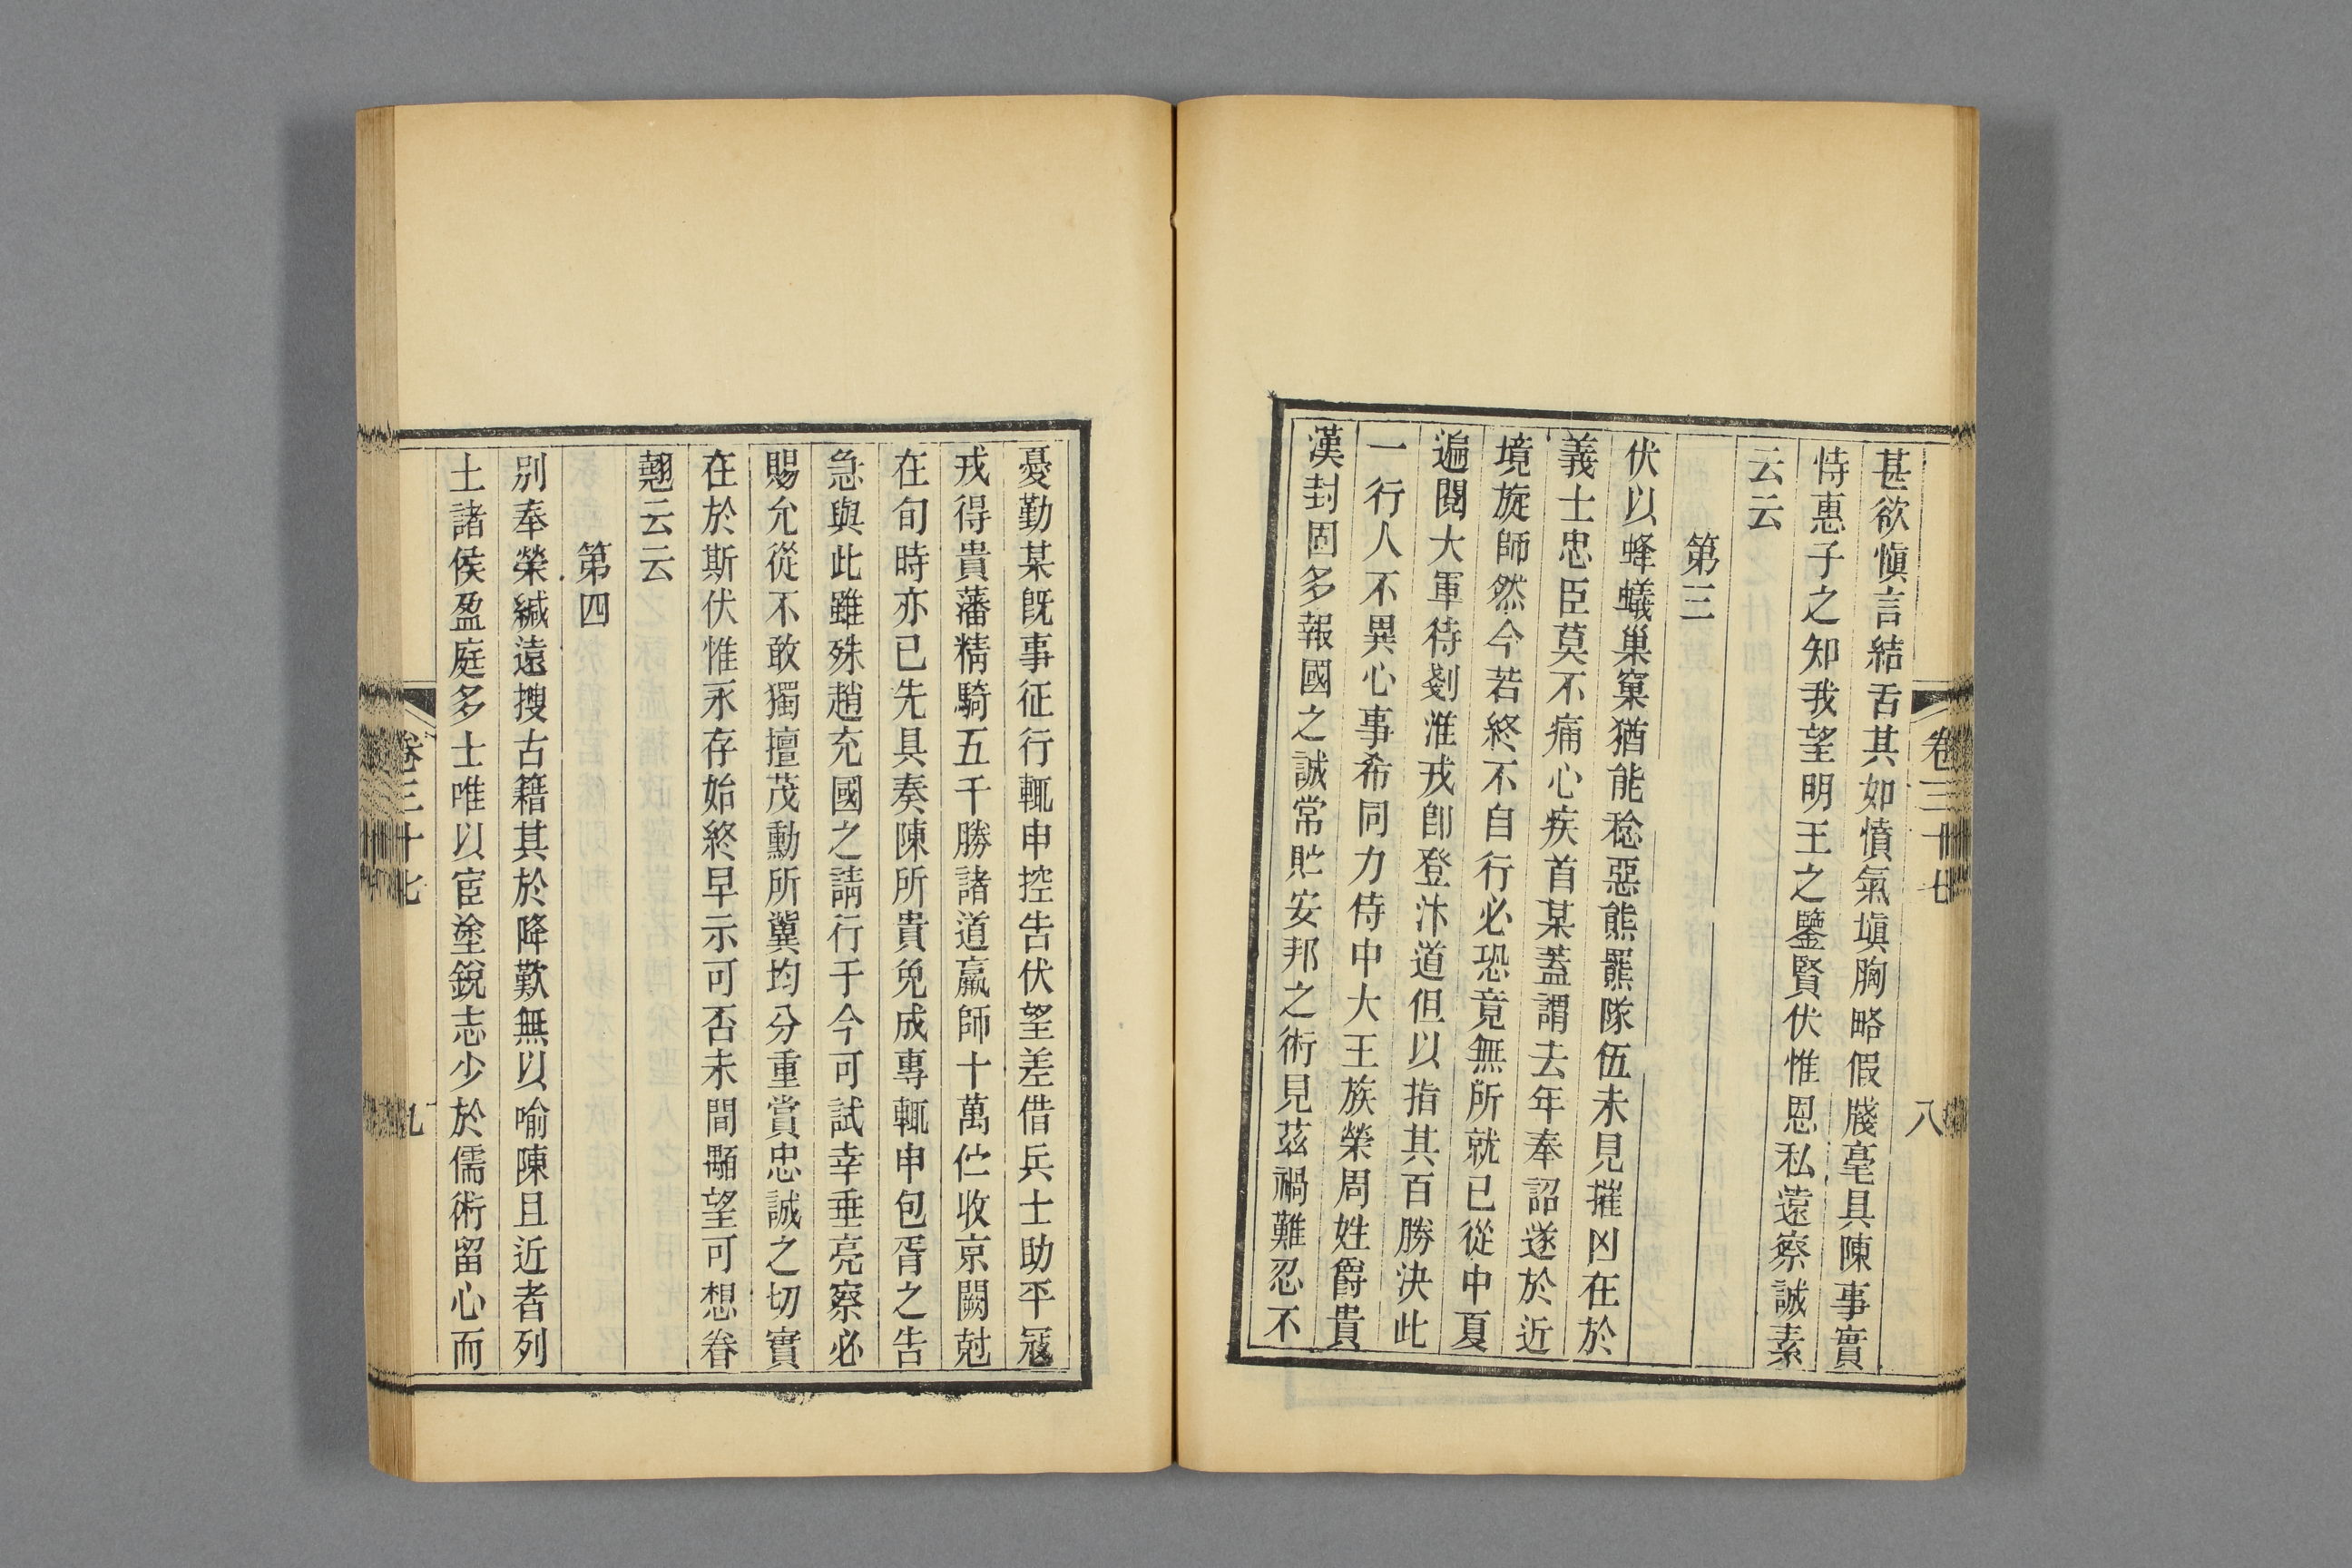 甚欲愼言結舌其如憤氣塡胸略假牋毫具陳事實
恃惠子之知我望明王之鑒賢伏惟恩私遠察誠素
云云
第三
伏以蜂蟻巢窠猶能稔惡熊羆隊伍未見摧凶在於
義士忠臣莫不痛心疾首某蓋謂去年奉詔遂於近
境旋師然今若終不自行必恐竟無所就已從中夏
遍閱大軍待剗淮戎卽登汴道但以指其百勝決此
一行人不異心事希同力侍中大王族榮周姓爵貴
漢封固多報國之誠常貯安邦之術見茲禍難忍不
卷三十七
八
憂勤某旣事征行輒申控告伏望差借兵士助平寇
戎得貴藩精騎五千勝諸道羸師十萬伫收京闕尅
在旬時亦已先具奏陳所貴免成專輒申包胥之告
急與此雖殊趙充國之請行于今可試幸垂亮察必
賜允從不敢獨擅茂勳所冀均分重賞忠誠之切實
在於斯伏惟永存始終早示可否未間顒望可想眷
翹云云
第四
別奉榮緘遠搜古籍其於降歎無以喻陳且近者列
土諸侯盈庭多士唯以宦塗銳志少於儒術留心而
卷三十七
九